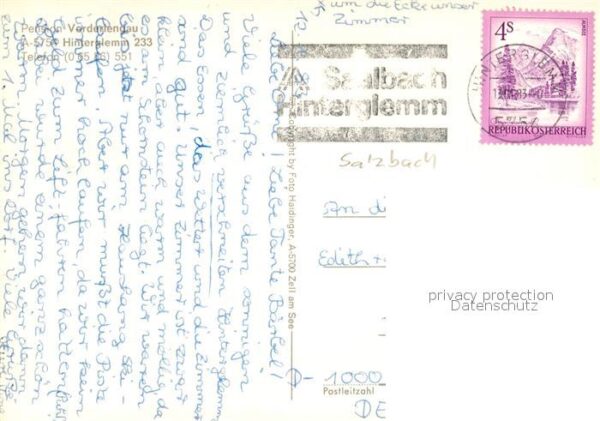 Pension Vorderlengau
A-5754 Hinterglemm 233
Telefon (0 65 41) 551
12.
Liebe Tante Bärbel!
Viele Grüße aus dem sonnigen
und ziemlich verschneiten Hinterglemm
Das Essen, das Wetter und die Zimmer
sind gut. Unser Zimmer ist zwar
klein aber auch warm und mollig, da
es am Schornstein liegt. Wir waren
bis jetzt nur am
gefahren. Aber wir mußten die Piste
immer hoch laufen, da wir kein
Geld zum Lift-fahren hatten.
wurde einem ganz schön
warm. Morgen gehen wir dann
zum 1. Mal ins Dorf. Viele Grüße
um die Ecke unser
Zimmer
Copyright by Foto Haidinger, A-5700 Zell am See
Saalbach
Hinterglemm
4S
REPUBLIK ÖSTERREICH
HINTERGLEMM
5754
Salzbach
An di
Edith +
privacy protection
Datenschutz
D- 1000
Postleitzahl
DE